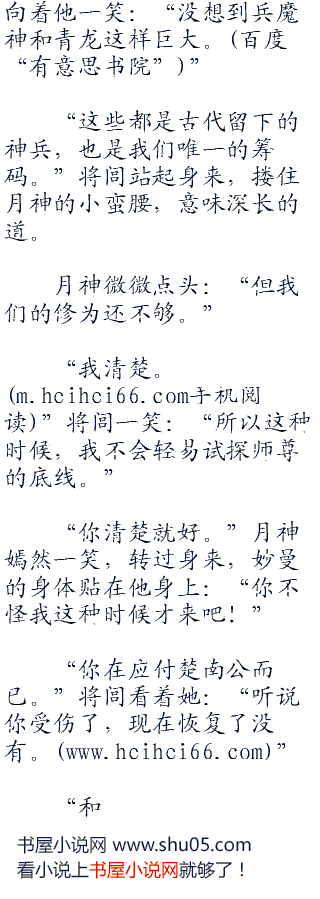 向着他一笑：“没想到兵魔
神和青龙这样巨大。(百度
“有意思书院”)”
“这些都是古代留下的
神兵，也是我们唯一的筹
码。”将闾站起身来，搂住
月神的小蛮腰，意味深长的
道。
月神微微点头：“但我
们的修为还不够。”
“我清楚。
(m.hcihci66.com手机阅
读)”将闾一笑：“所以这种
时候，我不会轻易试探师尊
的底线。”
“你清楚就好。”月神
嫣然一笑，转过身来，妙曼
的身体贴在他身上：“你不
怪我这种时候才来吧！”
“你在应付楚南公而
已。”将闾看着她：“听说
你受伤了，现在恢复了没
有。(www.hcihci66.com)”
“和
书屋小说网 www.shu05.com
看小说上书屋小说网就够了！